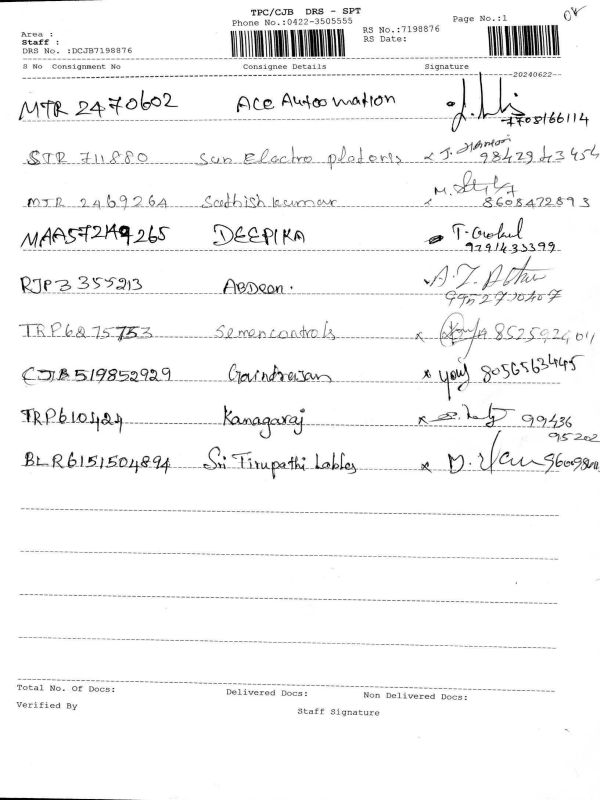 TPC/CJB DRS - SPT
Phone No.:0422-3505555 Page No.:1
Area : RS No.:7198876
Staff : RS Date:
DRS No. :DCJB7198876
S No Consignment No Consignee Details Signature
--20240622--
MTR 2470602 Ace Automation
7708166114
STR 711880 Sun Electro platers
98429 43454
MTR 2469264 Sathish kumar 8608472893
MAA572149265 DEEPIKA T. Gokul
9791433399
RJP3355213 ABDeen.
9952730407
TRP6875753 Semencontrols x 852592401
CJB519852929 Govindrajan x 8056563445
TRP610424 Kanagaraj x 99436
95202
BLR6151504894 Sri Tirupathi Lables x
Total No. Of Docs: Delivered Docs: Non Delivered Docs:
Verified By Staff Signature